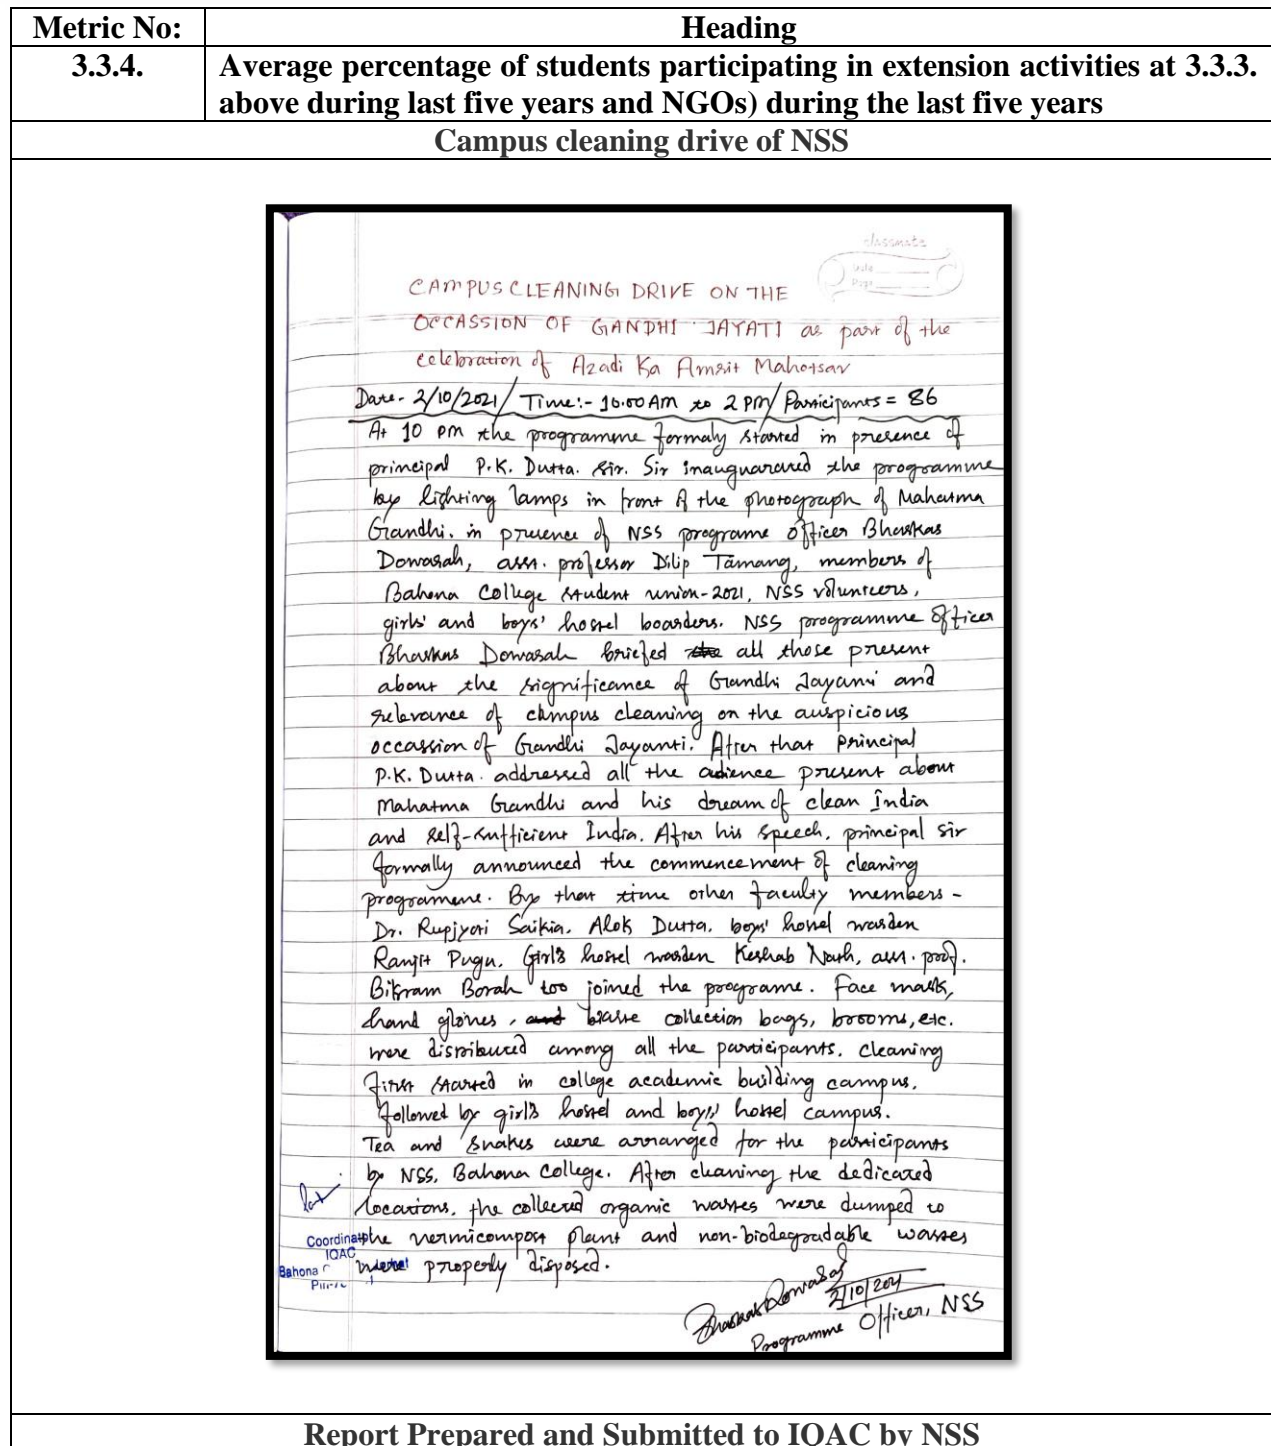 Metric No: Heading
3.3.4. Average percentage of students participating in extension activities at 3.3.3.
above during last five years and NGOs) during the last five years
Campus cleaning drive of NSS
classmate
Date
Page
CAMPUS CLEANING DRIVE ON THE
OCCASSION OF GANDHI JAYATI as part of the
celebration of Azadi Ka Amrit Mahotsav
Date- 2/10/2021/ Time:- 10.00 AM to 2 PM/ Participants = 86
At 10 PM the programme formaly started in presence of
principal P.K. Dutta. Sir. Sir inauguarated the programme
by lighting lamps in front of the photograph of Mahatma
Gandhi. in presence of NSS programe officer Bhaskar
Dowarah, assn. professor Dilip Tamang, members of
Bahona College student union-2021, NSS volunteers,
girls' and boys' hostel boarders. NSS programme officer
Bhaskar Dowarah briefed the all those present
about the significance of Gandhi Jayanti and
relevance of campus cleaning on the auspicious
occassion of Gandhi Jayanti. After that principal
P.K. Dutta. addressed all the adience present about
Mahatma Gandhi and his dream of clean India
and self-sufficient India. After his speech, principal sir
formally announced the commencement of cleaning
programme. By that time other faculty members -
Dr. Rupjyoti Saikia, Alok Dutta, boys' hostel warden
Ranjit Pugu, Girl's hostel warden Keshab Nath, assn. prof.
Bikram Borah too joined the programe. Face mask,
hand gloves, and waste collection bags, brooms, etc.
were distributed among all the participants. Cleaning
first started in college academic building campus,
followed by girl's hostel and boys' hostel campus.
Tea and snakes were arranged for the participants
by NSS, Bahona College. After cleaning the dedicated
locations, the collected organic wastes were dumped to
the vermicompost plant and non-biodegradable wastes
were properly disposed.
Coordinator
IQAC
Bahona
2/10/2021
Programme Officer, NSS
Report Prepared and Submitted to IQAC by NSS